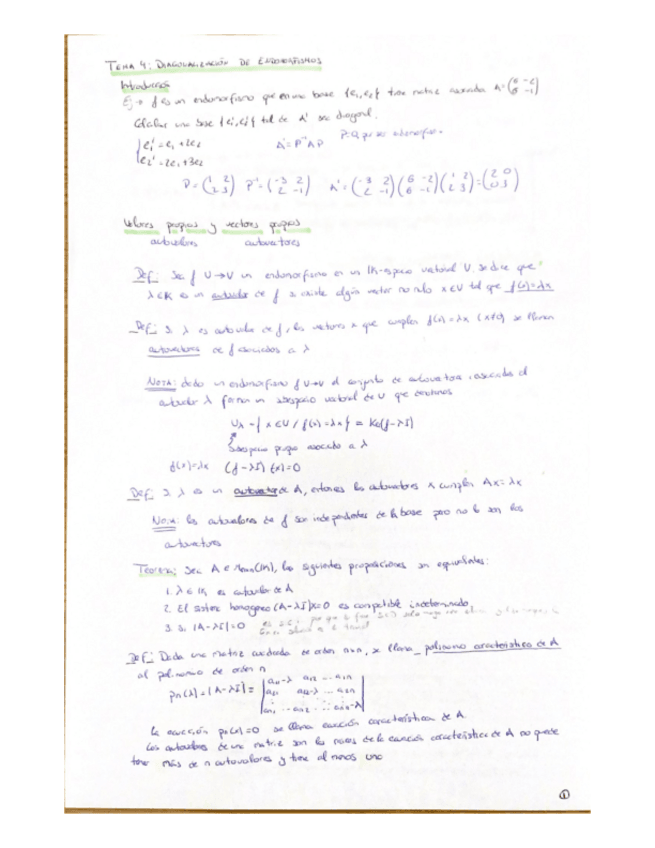 TEMA 4: DIAGONALIZACIÓN DE ENDOMORFISMOS
Introducción
Ej → f es un endomorfismo que en una base {e₁,e₂} tiene matriz asociada A=(6 -2 / 6 -1)
Calcular una base {e₁',e₂'} tal que A' sea diagonal.
e₁' = e₁ + 2e₂
A' = P⁻¹AP
P=Q por ser endomorfismo
e₂' = 2e₁ + 3e₂
P=(1 2 / 2 3) P⁻¹=(-3 2 / 2 -1) A'=(-3 2 / 2 -1)(6 -2 / 6 -1)(1 2 / 2 3)=(2 0 / 0 3)
Valores propios y vectores propios
autovalores autovectores
Def: Sea f U→U un endomorfismo en un IK-espacio vectorial U. se dice que
λ∈K es un autovalor de f si existe algún vector no nulo x∈U tal que f(x)=λx
Def: Si λ es autovalor de f, los vectores x que cumplen f(x)=λx (x≠0) se llaman
autovectores de f asociados a λ
NOTA: dado un endomorfismo f U→U el conjunto de autovectores asociados al
autovalor λ forman un subespacio vectorial de U que denotamos
Uλ = { x∈U / f(x)=λx } = Ker(f-λI)
Subespacio propio asociado a λ
f(x)=λx (f-λI)(x)=0
Def: Si λ es un autovector de A, entonces los autovectores x cumplen Ax=λx
Nota: los autovalores de f son independientes de la base pero no lo son los
autovectores
Teorema: Sea A∈Mnxn(IK), las siguientes proposiciones son equivalentes:
1. λ∈IK es autovalor de A
2. El sistema homogéneo (A-λI)x=0 es compatible indeterminado
3. si |A-λI|=0
Def: Dada una matriz cuadrada de orden nxn, se llama polinomio característico de A
al polinomio de orden n
pn(λ)=|A-λI|= | a₁₁-λ a₁₂ ... a₁n
a₂₁ a₂₂-λ ... a₂n
an₁ an₂ ... ann-λ |
La ecuación pn(λ)=0 se llama ecuación característica de A
Los autovalores de una matriz son las raíces de la ecuación característica de A no puede
tener más de n autovalores y tiene al menos uno
1